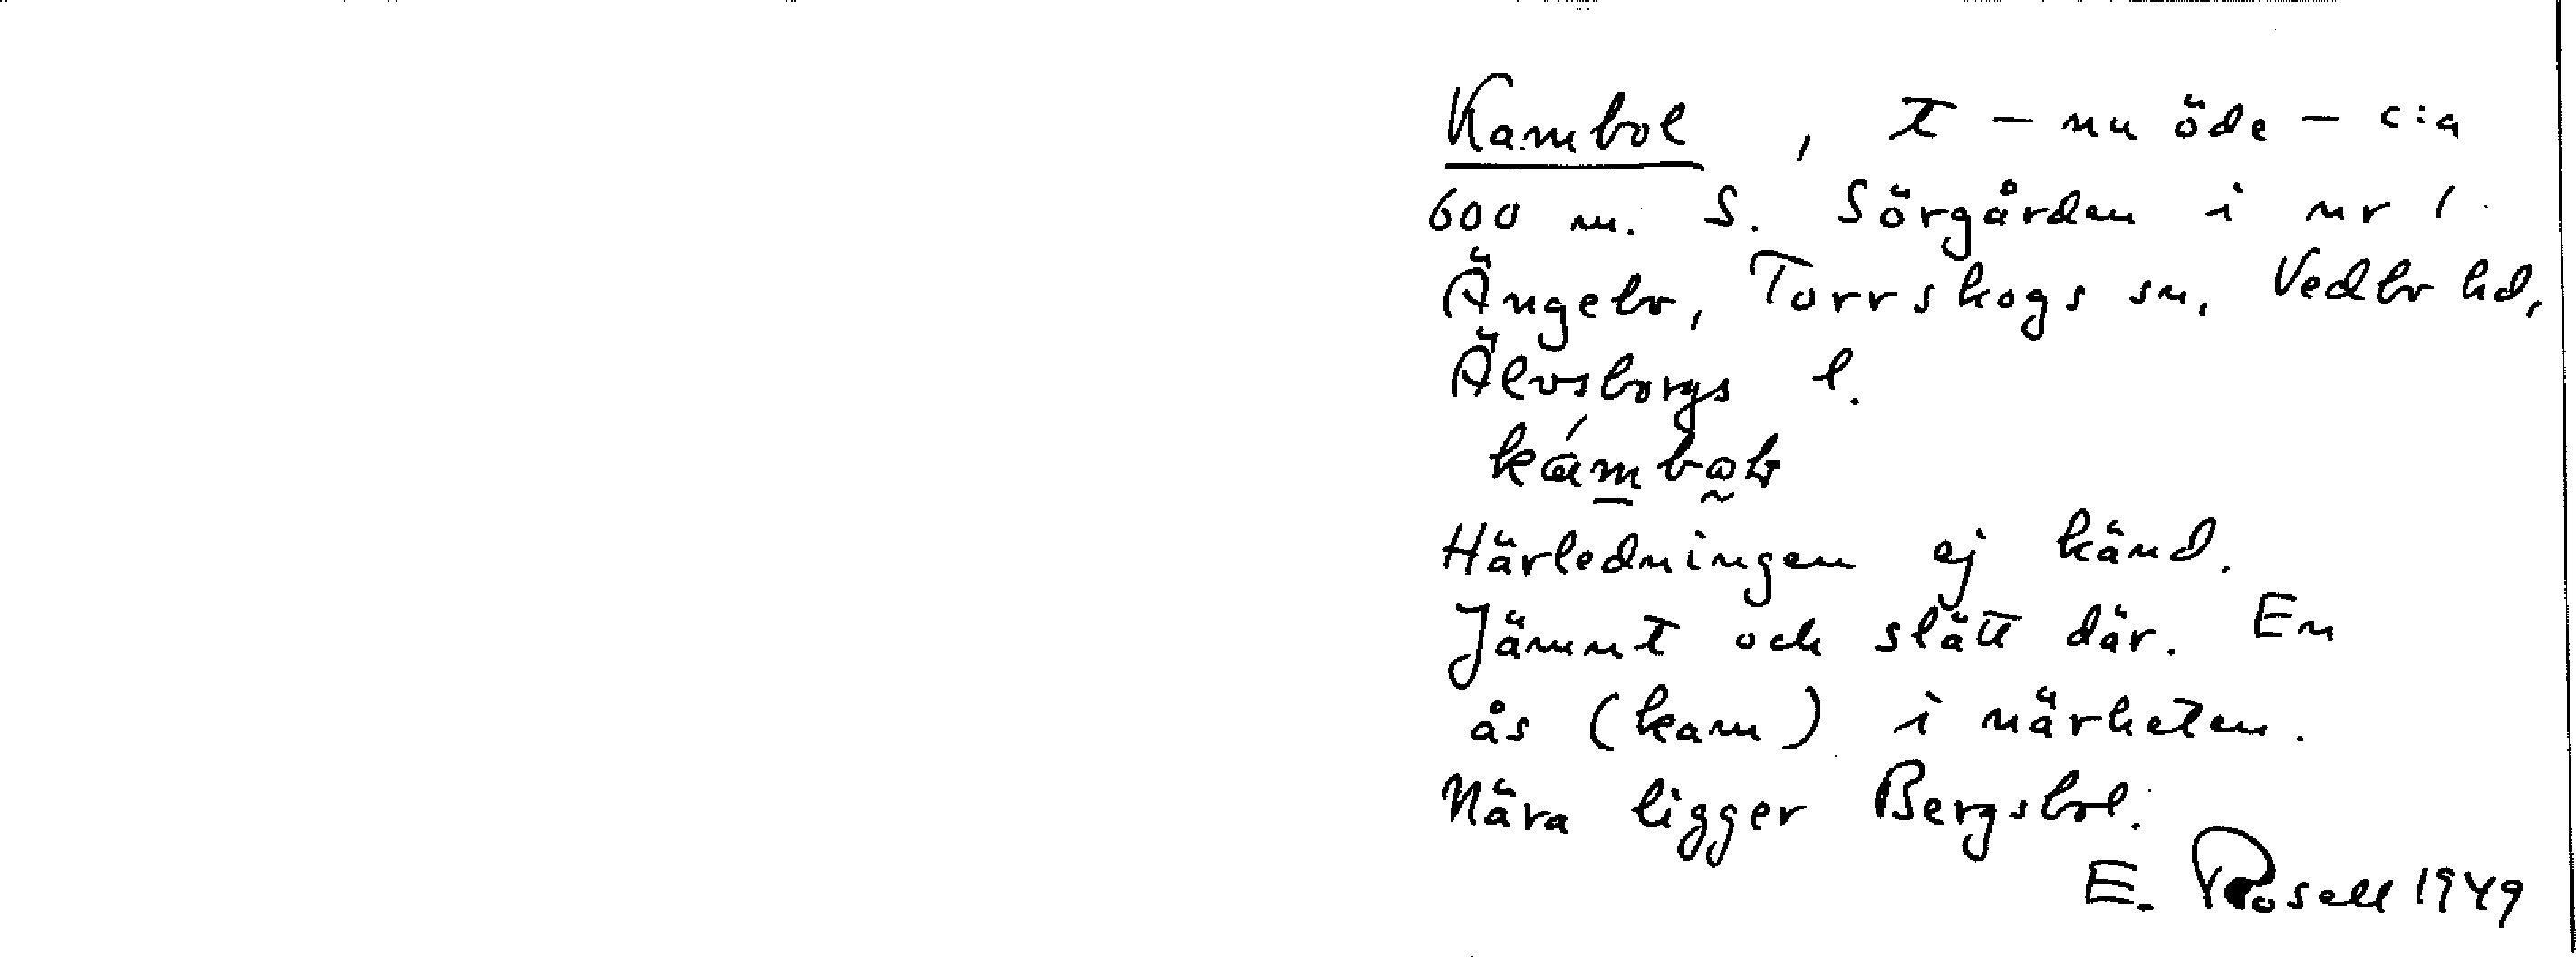 Kambol, t – nu öde – c:a
600 m. S. Sörgården i nr 1
Ängebo, Torrskogs sn, Vedbo hd,
Älvsborgs l.
Härledningen ej känd.
Jämnt och slätt där. En
ås (kam) i närheten.
Nära ligger Bergsbol.
E. Rosell 1949